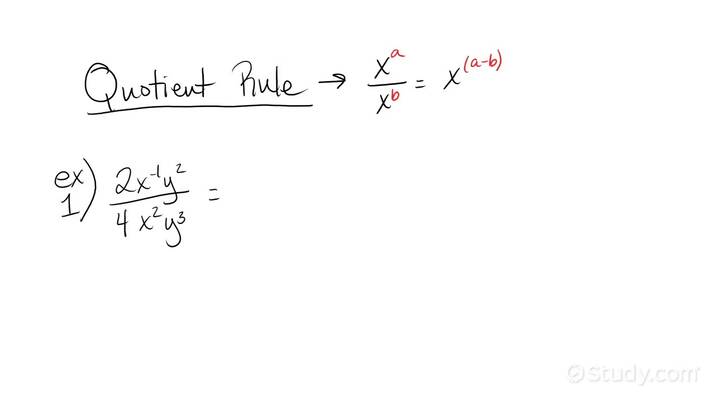 Quotient Rule → x^a / x^b = x^(a-b)
ex 1) 2x^-1y^2 / 4x^2y^3 =
©Study.com